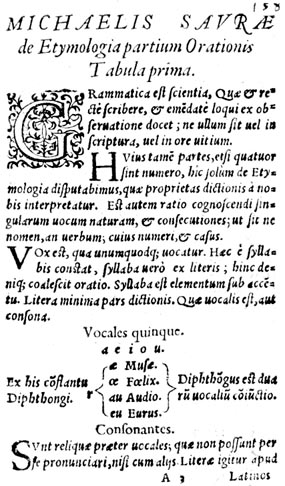 153
MICHAELIS SAVRÆ
de Etymologia partium Orationis
Tabula prima.
GRammatica est scientia, Quæ & re-
ctè scribere, & emēdatè loqui ex ob-
seruatione docet; ne ullum sit uel in
scriptura, uel in ore uitium.
HVius tamē partes, etsi quatuor
sint numero, hic solùm de Ety-
mologia disputabimus, quæ proprietas dictionis à no-
bis interpretatur. Est autem ratio cognoscendi sin-
gularum uocum naturam, & consecutiones; ut sit ne
nomen, an uerbum; cuius numeri, & casus.
VOx est, qua unumquodq; uocatur. Hæc è sylla-
bis constat, syllaba uerò ex literis; hinc de-
niq; coalescit oratio. Syllaba est elementum sub accē-
tu. Litera minima pars dictionis. Quæ uocalis est, aut
consona.
Vocales quinque.
a e i o u.
æ Musæ.
Ex his cōstantu œ Fœlix. Diphthōgus est dua
Diphthongi. r au Audio. rū uocaliū cōiūctio.
eu Eurus.
Consonantes.
SVnt reliquæ præter uocales; quæ non possunt per
se pronunciari, nisi cum alijs Literæ igitur apud
A 3 Latinos